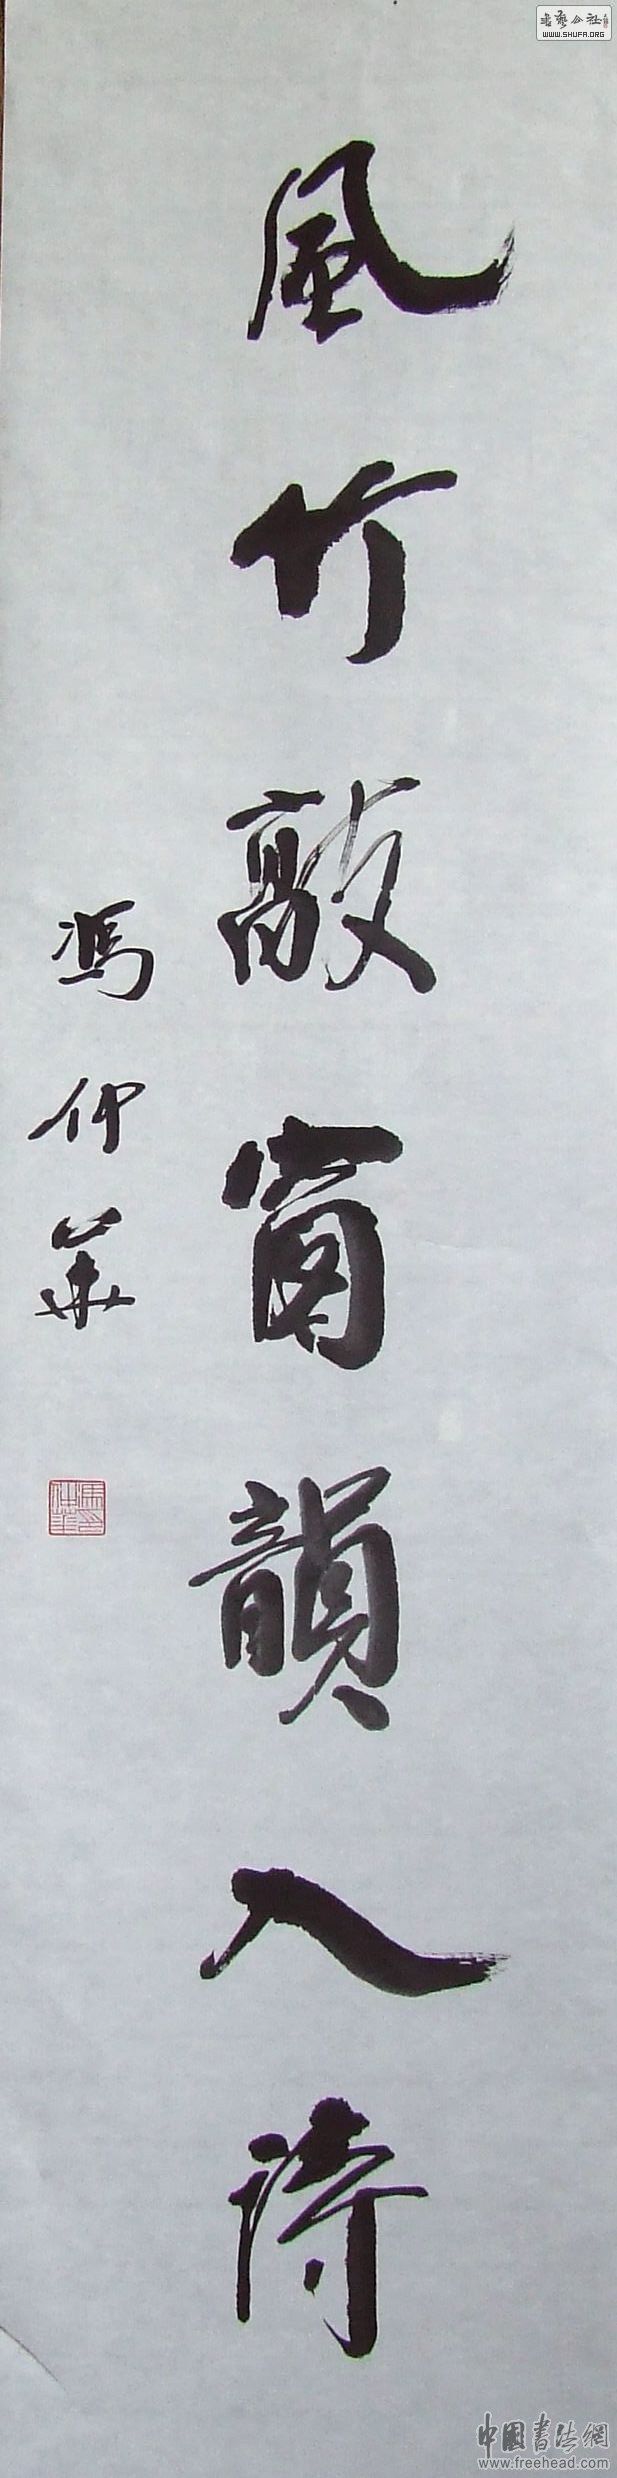 書藝公社
WWW.SHUFA.ORG
風竹敲窗韻入詩
馮仲華
中國書法網
www.freehead.com